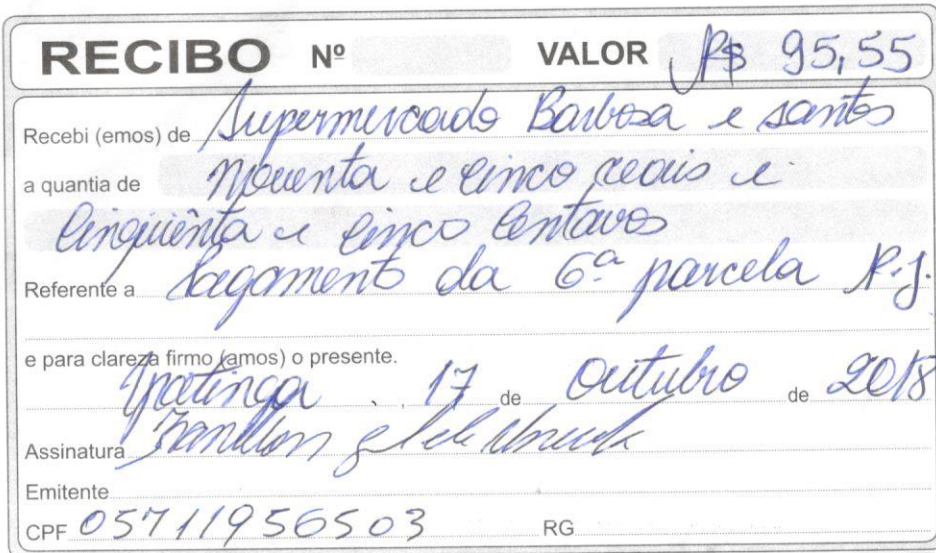 RECIBO Nº VALOR R$ 95,55
Recebi (emos) de Supermercado Barbosa e santos
a quantia de Noventa e Cinco reais e
Cinquênta e Cinco Centavos
Referente a Pagamento da 6ª parcela R.J.
e para clareza firmo (amos) o presente.
Ipatinga, 17 de Outubro de 2018
Assinatura
Emitente
CPF 05711956503 RG